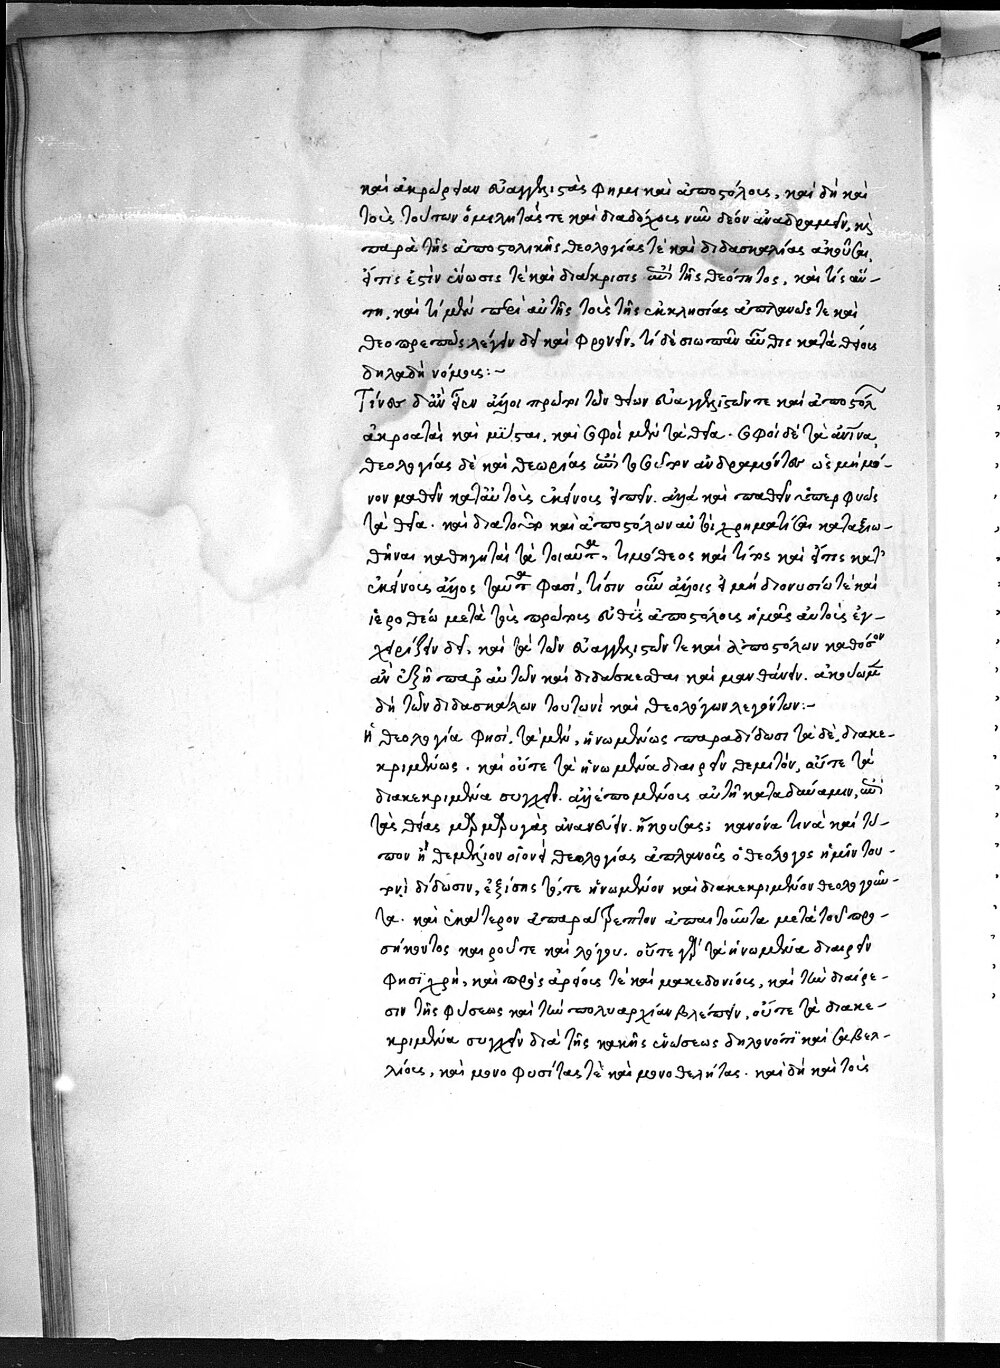 καὶ ἀκρώρειαν εὐαγγελιστὰς φημι καὶ ἀποστόλους, καὶ δὴ καὶ
τοὺς τούτων ὁμιλητάς τε καὶ διαδόχους νῦν δέον ἀναδραμεῖν, καὶ
παρὰ τῆς ἀποστολικῆς θεολογίας τὲ καὶ διδασκαλίας ἀκοῦσαι,
εἴτις ἐστὶν ἕνωσις τὲ καὶ διάκρισις ἐπὶ τῆς θεότητος, καὶ τίς αὕ-
τη, καὶ τί μὲν περὶ αὐτῆς τοὺς τῆς ἐκκλησίας ἀπλανῶς τε καὶ
θεοπρεπῶς λέγειν δεῖ καὶ φρονεῖν, τί δὲ σιωπᾶν αὖθις κατὰ θείους
δηλαδὴ νόμους:-
Τίνες δ' ἂν εἶεν ἄλλοι πρῶτοι τῶν θείων εὐαγγελιστῶν τε καὶ ἀποστόλων
ἀκροαταὶ καὶ μύσται, καὶ σοφοὶ μὲν τὰ θεῖα. σοφοὶ δὲ τὰ ἀνθρώπινα,
θεολογίας δὲ καὶ θεωρίας ἐπὶ τοσοῦτον ἀναδραμόντες ὡς μὴ μό-
νον μαθεῖν κατ' αὐτοὺς ἐκείνους εἰπεῖν. ἀλλὰ καὶ παθεῖν ὑπερφυῶς
τὰ θεῖα. καὶ διατοῦτο καὶ ἀποστόλων αὐτοὶ χρηματίσαι καταξιω-
θῆναι καθηγηταὶ τὰ τοιαῦτα, τιμόθεος καὶ τίτος καὶ εἴτις κατ'
ἐκείνους ἄλλος ταῦτα φασί, τίσιν οὖν ἄλλοις εἰ μὴ διονυσίω τὲ καὶ
ἱεροθέω μετὰ τοὺς πρώτους εὐθὺς ἀποστόλους ἡμᾶς αὐτοὺς ἐγ-
χειρίζειν δεῖ, καὶ τὰ τῶν εὐαγγελιστῶν τε καὶ ἀποστόλων καθόσον
ἂν ἐξῇ παρ' αὐτῶν καὶ διδάσκεσθαι καὶ μανθάνειν. ἀκούωμεν
δὴ τῶν διδασκάλων τουτωνὶ καὶ θεολόγων λεγόντων:-
Ἡ θεολογία φησὶ, τὰ μὲν, ἡνωμένως παραδίδωσι τὰ δὲ, διακε-
κριμένως. καὶ οὔτε τὰ ἡνωμένα διαιρεῖν θεμιτόν, οὔτε τὰ
διακεκριμένα συγχεῖν. ἀλλ' ἑπομένους αὐτῇ κατὰ δύναμιν, ἐπὶ
τὰς θείας μαρμαρυγὰς ἀνανεύειν. ἤκουσας; κανόνα τινὰ καὶ τύ-
πον ἢ θεμέλιον οἱονεὶ θεολογίας ἀπλανοῦς ὁ θεολόγος ἡμῖν του-
τονὶ δίδωσιν, ἐξίσης τό, τε ἡνωμένον καὶ διακεκριμένον θεολογοῦν-
τα. καὶ ἑκάτερον ἀπαράτρεπτον ἀπαιτοῦντα μετὰ τοῦ προ-
σήκοντος καιροῦ τε καὶ λόγου. οὔτε γὰρ τὰ ἡνωμένα διαιρεῖν
φησὶ χρή, καὶ πρὸς ἀρείους τὲ καὶ μακεδονίους, καὶ τὴν διαίρε-
σιν τῆς φύσεως καὶ τὴν πολυαρχίαν βλέπειν, οὔτε τὰ διακε-
κριμένα συγχεῖν διὰ τῆς κακῆς ἑνώσεως δηλονότι καὶ σαβελ-
λίους, καὶ μονοφυσίτας τὲ καὶ μονοθελήτας. καὶ δὴ καὶ τοὺς